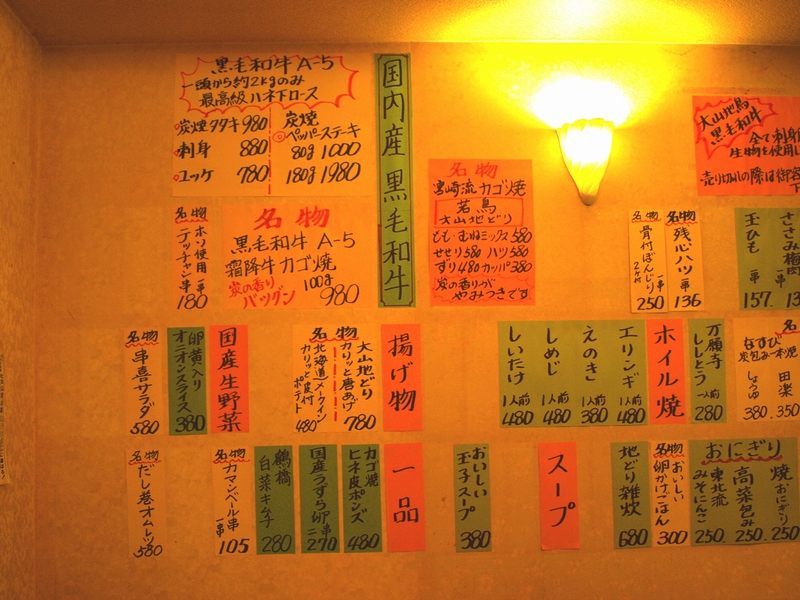 黒毛和牛 A-5
一頭から約2kgのみ
最高級ハネ下ロース
炭煙タタキ 980
刺身 880
ユッケ 780
炭焼
ペッパーステーキ
80g 1000
180g 1980
国内産 黒毛和牛
名物
宮崎流カゴ焼
若鳥
大山地どり
もも・むねミックス 580
せせり 580 ハツ 580
ずり 480 カッパ 380
炭の香りが
やみつきです
大山地鳥
黒毛和牛
全て刺身
生物を使用し
売り切れの際は御容
名物
ホソ使用
テッチャン串
一串
180
名物
黒毛和牛 A-5
霜降牛カゴ焼
炭の香り
バツグン
100g
980
名物
骨付ぼんじり
一串
2ヶ付
250
名物
残心ハツ
一串
136
玉ひも
一串
157.
ささみ梅肉
名物
串喜サラダ
580
卵黄入り
オニオンスライス
380
国産生野菜
名物
大山地どり
カリッと唐あげ
780
北海道メークイン
カリッと皮付
ポテト
480
揚げ物
しいたけ
1人前
480
しめじ
1人前
480
えのき
1人前
380
エリンギ
1人前
480
ホイル焼
万願寺
ししとう
一人前
280
なすび
田楽
350
炭包み一本焼
しょうゆ
380.
名物
だし巻オムレツ
580
名物
カマンベール串
一串
105
鶴橋
白菜キムチ
280
国産うずら卵
二串
270
カゴ焼
ヒネ皮ポンズ
480
一品
おいしい
玉子スープ
380
スープ
地どり雑炊
680
名物
おいしい
卵かけごはん
300
おにぎり
東北流
みそにんにこ
250.
高菜包み
250.
焼おにぎり
250.